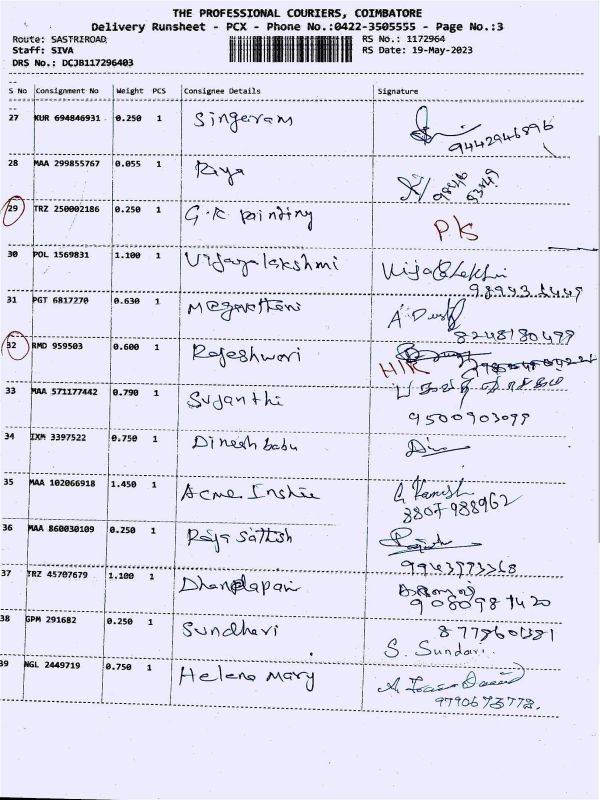 THE PROFESSIONAL COURIERS, COIMBATORE
Delivery Runsheet - PCX - Phone No.:0422-3505555 - Page No.:3
Route: SASTRIROAD, RS No.: 1172964
Staff: SIVA RS Date: 19-May-2023
DRS No.: DCJB117296403
S No Consignment No Weight PCS Consignee Details Signature
27 KUR 694846931 0.250 1 Singaram
9442946896
28 MAA 299855767 0.055 1 Riya
29 TRZ 250002186 0.250 1 G.K Printing PK
30 POL 1569831 1.100 1 Vijayalakshmi
31 PGT 6817270 0.630 1
8248180499
32 RMD 959503 0.600 1 Rajeshwari H/K
33 MAA 571177442 0.790 1 Sujanthi
9500903099
34 IXM 3397522 0.750 1 Dinesh babu
35 MAA 102066918 1.450 1 Acme
8807988962
36 MAA 860030109 0.250 1 Raja Sathish
9943973368
37 TRZ 45707679 1.100 1 Dhandapani
38 GPM 291682 0.250 1 Sundhari
S. Sundari.
39 NGL 2449719 0.750 1 Helena Mary
9790673772.